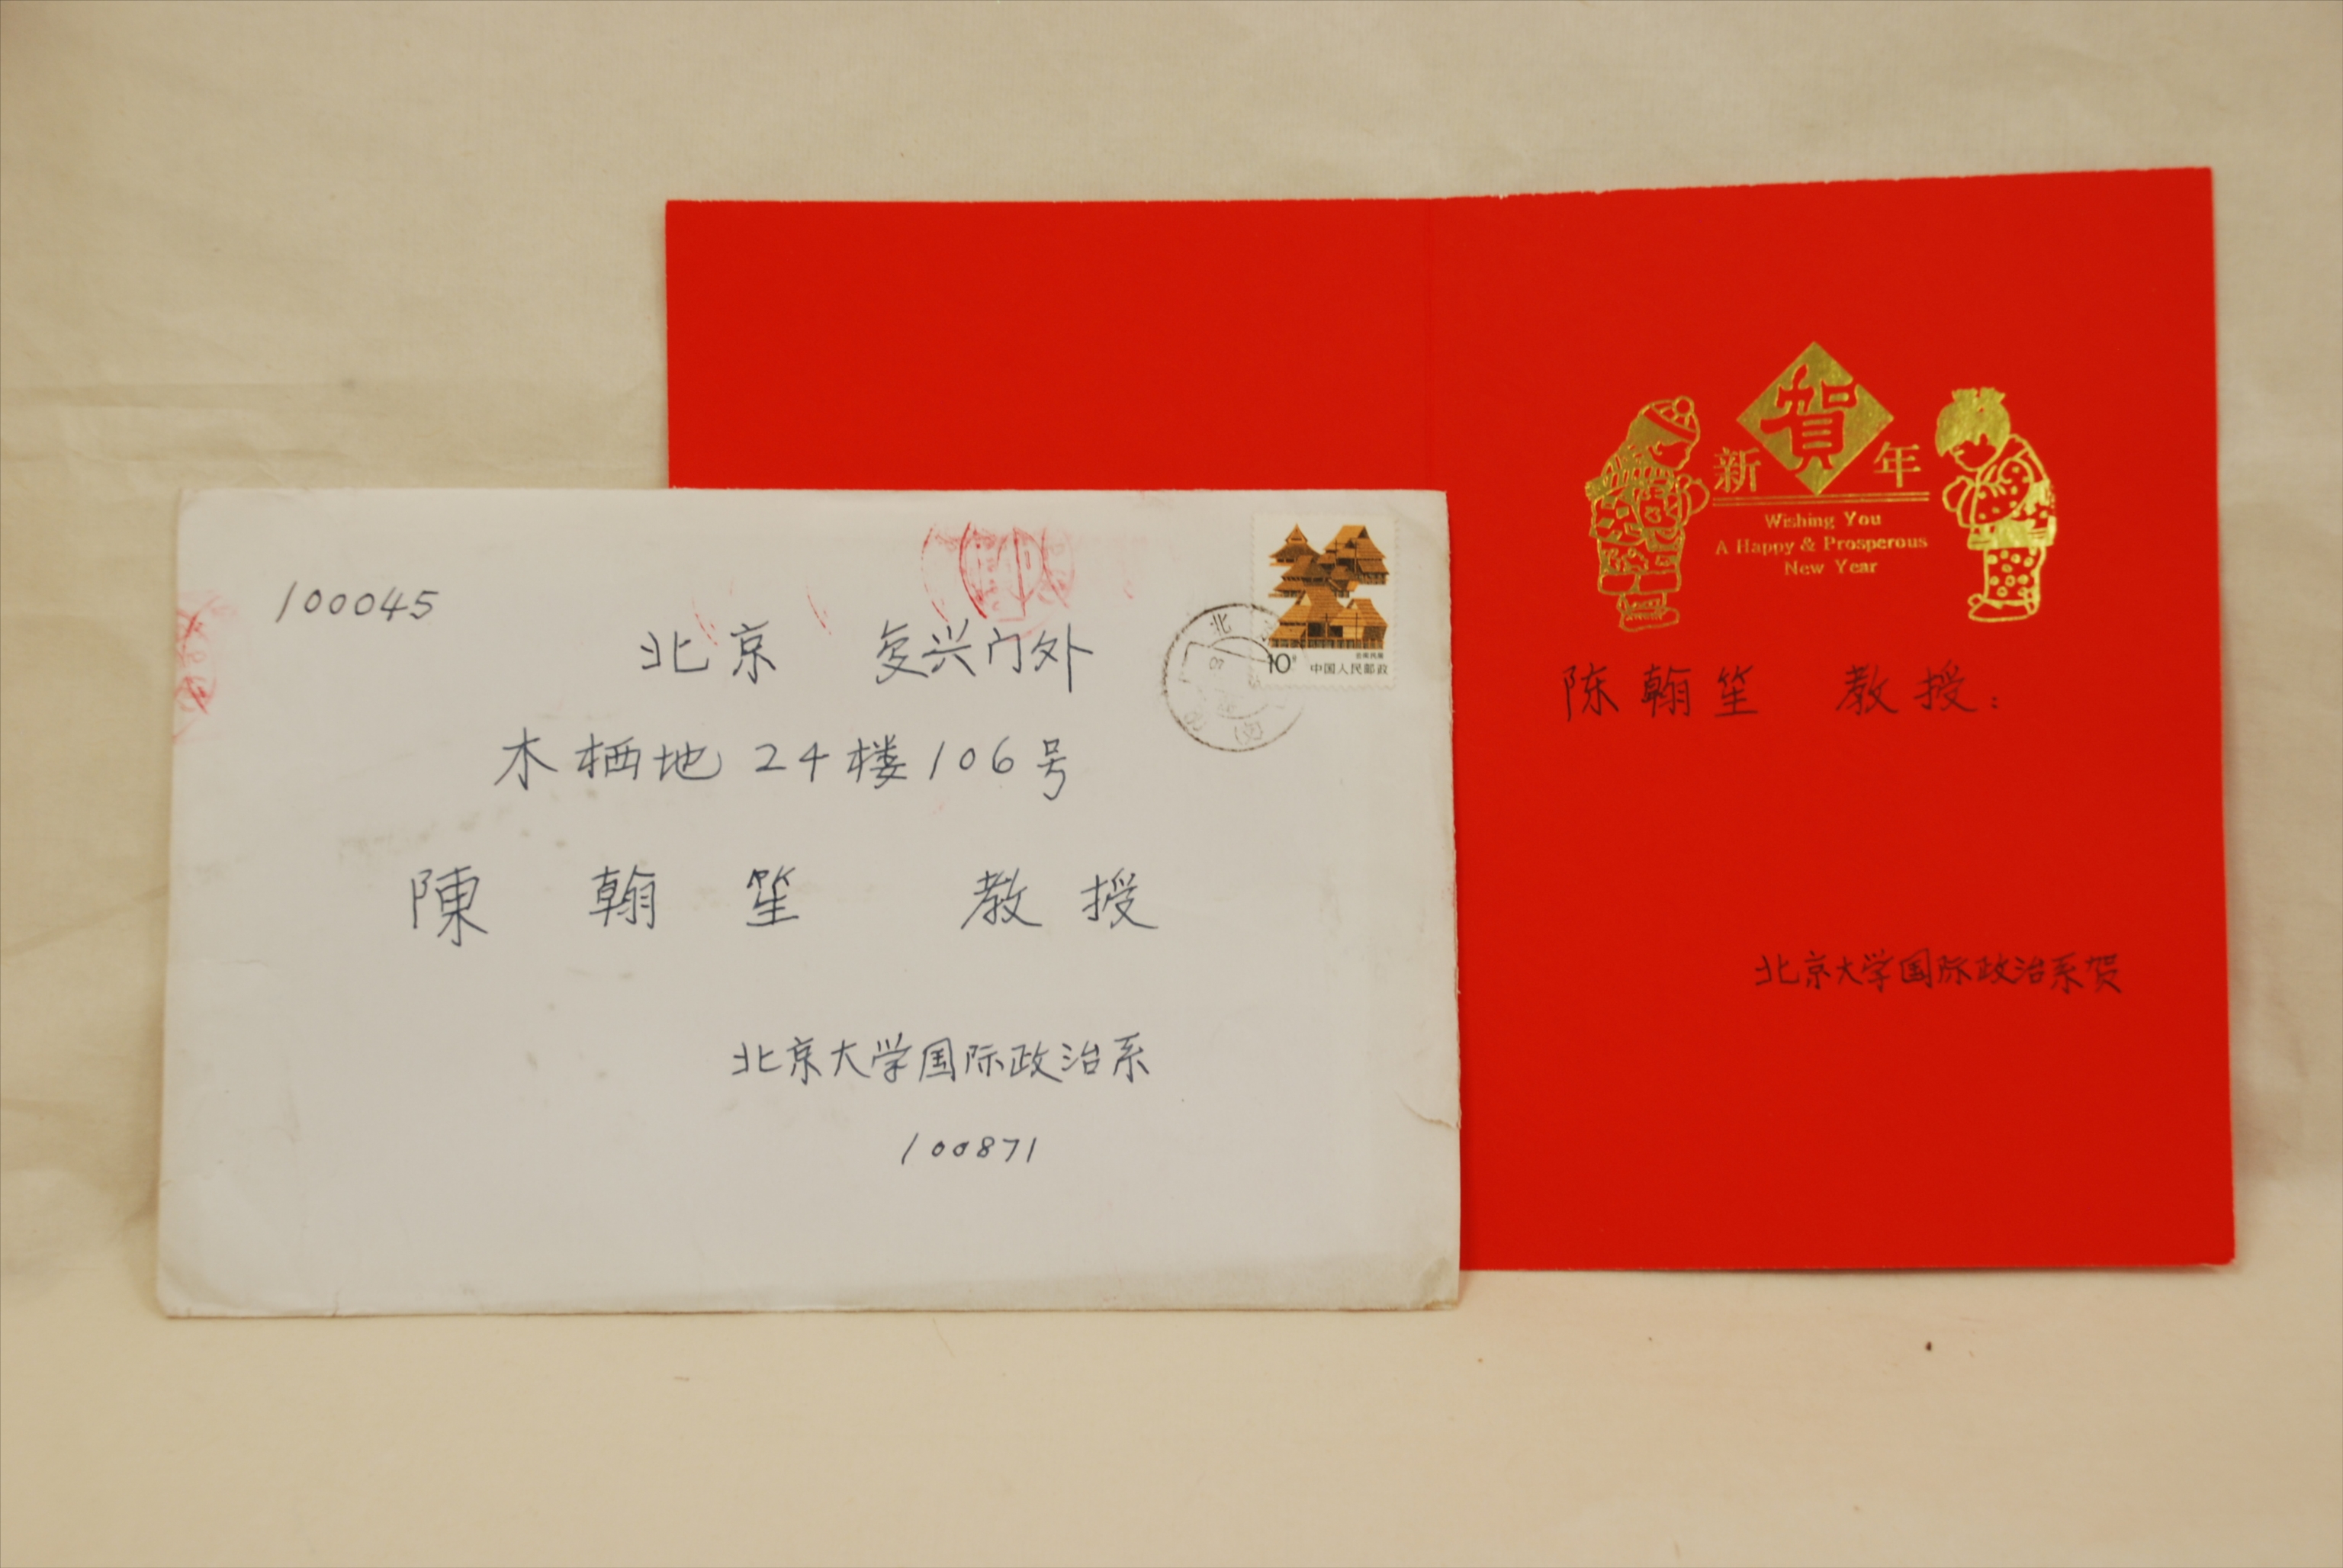 100045
北京 复兴门外
木栖地24楼106号
陳翰笙 教授
北京大学国际政治系
100871
10分
云南民居
中国人民邮政
北
新賀年
Wishing You
A Happy & Prosperous
New Year
陈翰笙 教授:
北京大学国际政治系贺